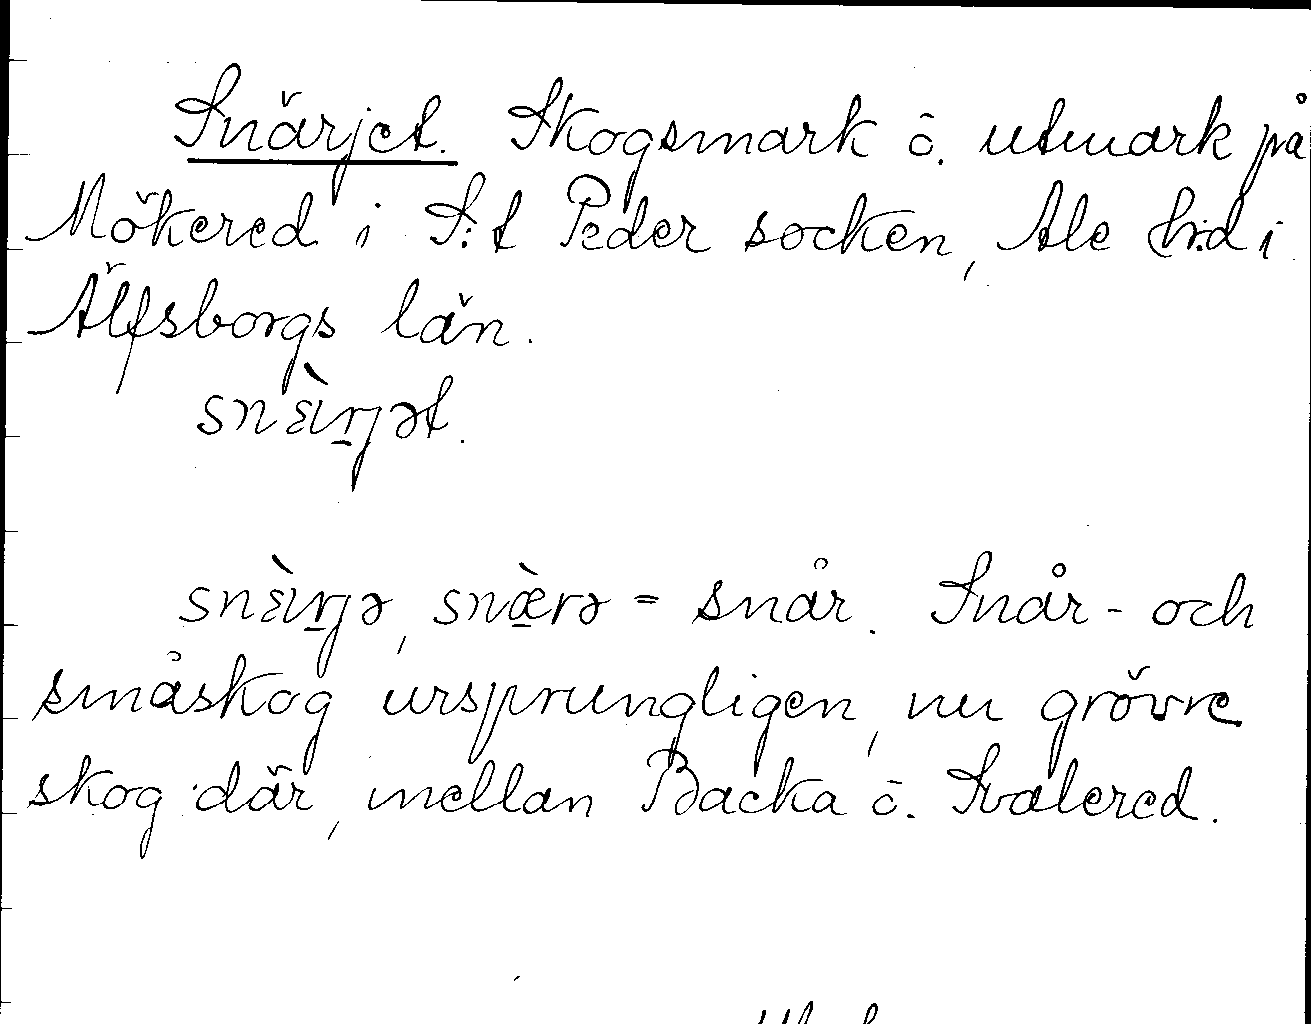 Snärjet. Skogsmark o. utmark på
Mökered i S:t Peder socken, Ale h:d i
Älfsborgs län.
snàrjət.
snàrjə, snæ̀rə = snår. Snår- och
småskog ursprungligen, nu grövre
skog där, mellan Backa o. Svalered.